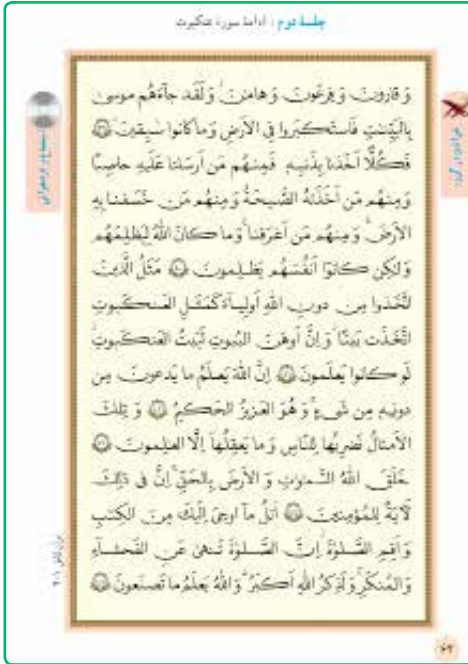 جلسهٔ دوم : ادامهٔ سوره عنکبوت
وَ قارونَ وَ فِرعَونَ وَ هامانَ وَ لَقَد جآءَهُم موسىٰ
بِالبَيِّنٰتِ فَاستَكبَروا فِى الاَرضِ وَ ما كانوا سٰبِقينَ ﴿٣٩﴾
فَكُلًّا اَخَذنا بِذَنبِهٖ فَمِنهُم مَن اَرسَلنا عَلَيهِ حاصِبًا
وَ مِنهُم مَن اَخَذَتهُ الصَّيحَةُ وَ مِنهُم مَن خَسَفنا بِهِ
الاَرضَ وَ مِنهُم مَن اَغرَقنا وَ ما كانَ اللّٰهُ لِيَظلِمَهُم
وَ لٰكِن كانوٓا اَنفُسَهُم يَظلِمونَ ﴿٤٠﴾ مَثَلُ الَّذينَ
اتَّخَذوا مِن دونِ اللّٰهِ اَولِيآءَ كَمَثَلِ العَنكَبوتِ
اتَّخَذَت بَيتًا وَ اِنَّ اَوهَنَ البُيوتِ لَبَيتُ العَنكَبوتِ
لَو كانوا يَعلَمونَ ﴿٤١﴾ اِنَّ اللّٰهَ يَعلَمُ ما يَدعونَ مِن
دونِهٖ مِن شَىءٍ وَ هُوَ العَزيزُ الحَكيمُ ﴿٤٢﴾ وَ تِلكَ
الاَمثالُ نَضرِبُها لِلنّاسِ وَ ما يَعقِلُهآ اِلَّا العٰلِمونَ ﴿٤٣﴾
خَلَقَ اللّٰهُ السَّماواتِ وَ الاَرضَ بِالحَقِّ اِنَّ فى ذٰلِكَ
لَآيَةً لِلمُؤمِنينَ ﴿٤٤﴾ اُتلُ مآ اوحِىَ اِلَيكَ مِنَ الكِتٰبِ
وَ اَقِمِ الصَّلوٰةَ اِنَّ الصَّلوٰةَ تَنهىٰ عَنِ الفَحشآءِ
وَ المُنكَرِ وَ لَذِكرُ اللّٰهِ اَكبَرُ وَ اللّٰهُ يَعلَمُ ما تَصنَعونَ ﴿٤٥﴾